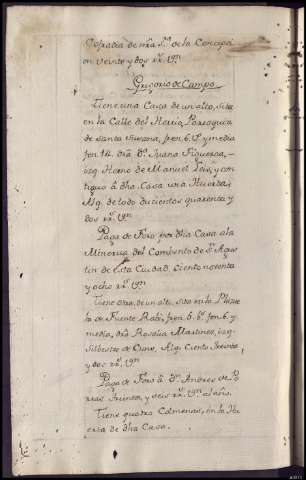 Cofradía de nrâ Sª de la Concepci
on veinte y dos rˢ vⁿ
Gregorio de Campo
Tiene una Casa de un alto, sita
en la Calle del Horrio, Parroquia
de Santa Susana, fren. 6. Pˢ y media
fon 14. drâ Dª Juana Figueroa,
izq. Horno de Manuel Tois, y con
tiguo â dha. Casa una Huerta,
Alq. de todo ducientos quarenta y
dos rˢ vⁿ
Paga de Foro por dha Casa a la
Minerva del Combento de Sⁿ Agus
tin de esta Ciudad, Ciento nobenta
y ocho rˢ vⁿ
Tiene otra, de un alto, sita en la Plazue
la de Fuente Rabi, fren. 6. Pˢ fon 6. y
media, drâ Rosalia Martinez, izq.
Silbestre de Cano, Alq. Ciento treinta,
y dos rˢ vⁿ
Paga de Foro â Dⁿ Andres de Po
rras treinta, y seis rˢ vⁿ al año.
Tiene quatro Colmenas, en la Hu
erta de dha Casa.